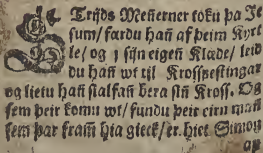 STrijds Meñerner toku þa Je
sum/færdu hañ af þeim Kyrt
le/og j sijn eigeñ Klæde/leid
du hañ wt til Krossfestingar
og lietu hañ sialfañ bera siñ Kross. Og
sem þeir komu wt/fundu þeir eirn mañ
sem þar fram hia gieck/er hiet Simon